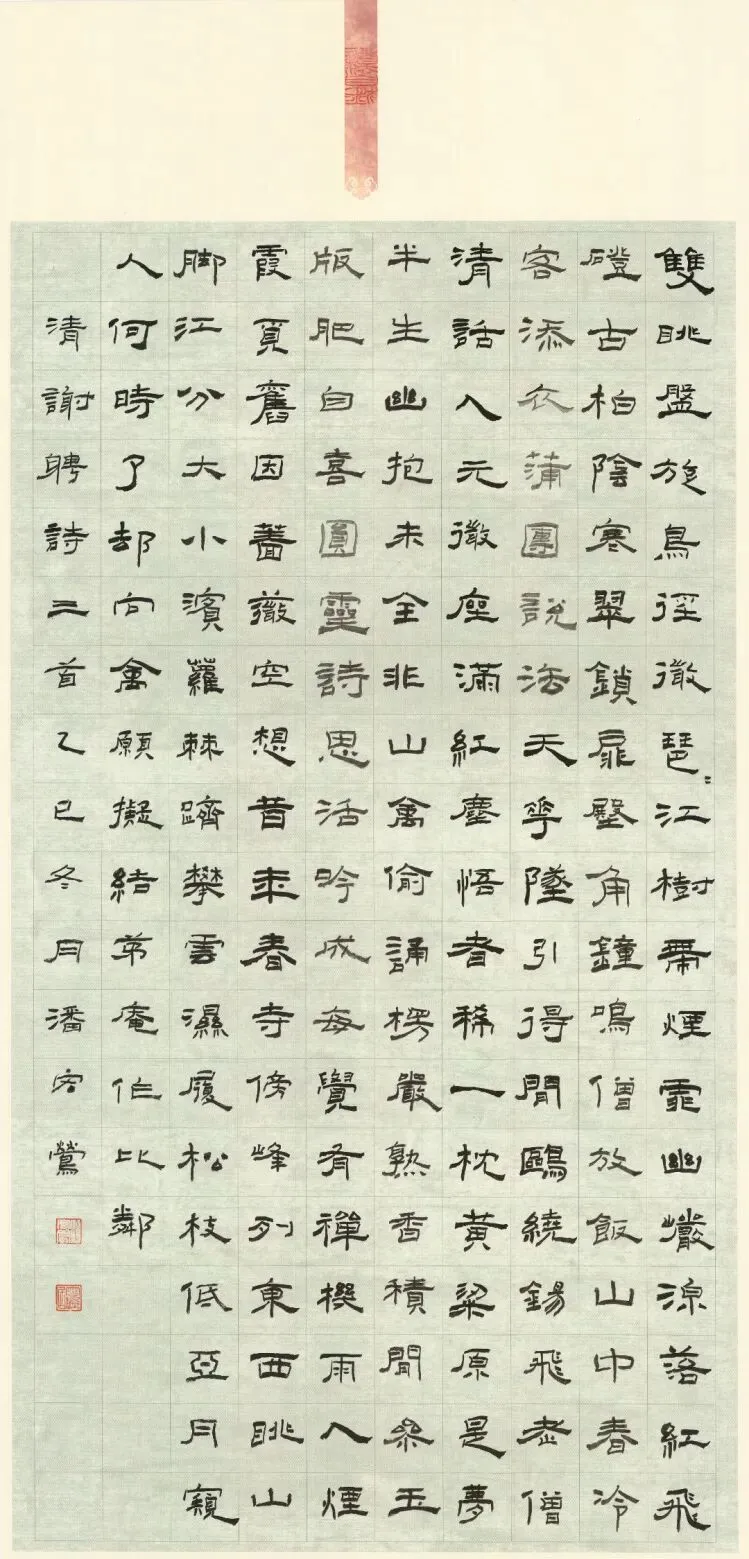 雙眺盤旋鳥徑微琶〻江樹帶煙霏幽巖涼落紅飛
磴古柏陰寒翠鎖扉壓角鐘鳴僧放飯山中春冷
客添衣蒲團說法天花墜引得閒鷗繞錫飛老僧
清話入元微座滿紅塵悟者稀一枕黃粱原是夢
半生幽抱未全非山禽偷誦楞嚴熟香積閒參玉
版肥自喜圓靈詩思活吟成每覺有禪機雨入煙
霞覓舊因薔薇空想昔年春寺傍峰列東西眺山
脚江分大小濱蘿棘躋攀雲濕履松枝低亞月窺
人何時了却向禽願擬結茅庵作比鄰
清謝聘詩三首乙巳冬月潘容鶯